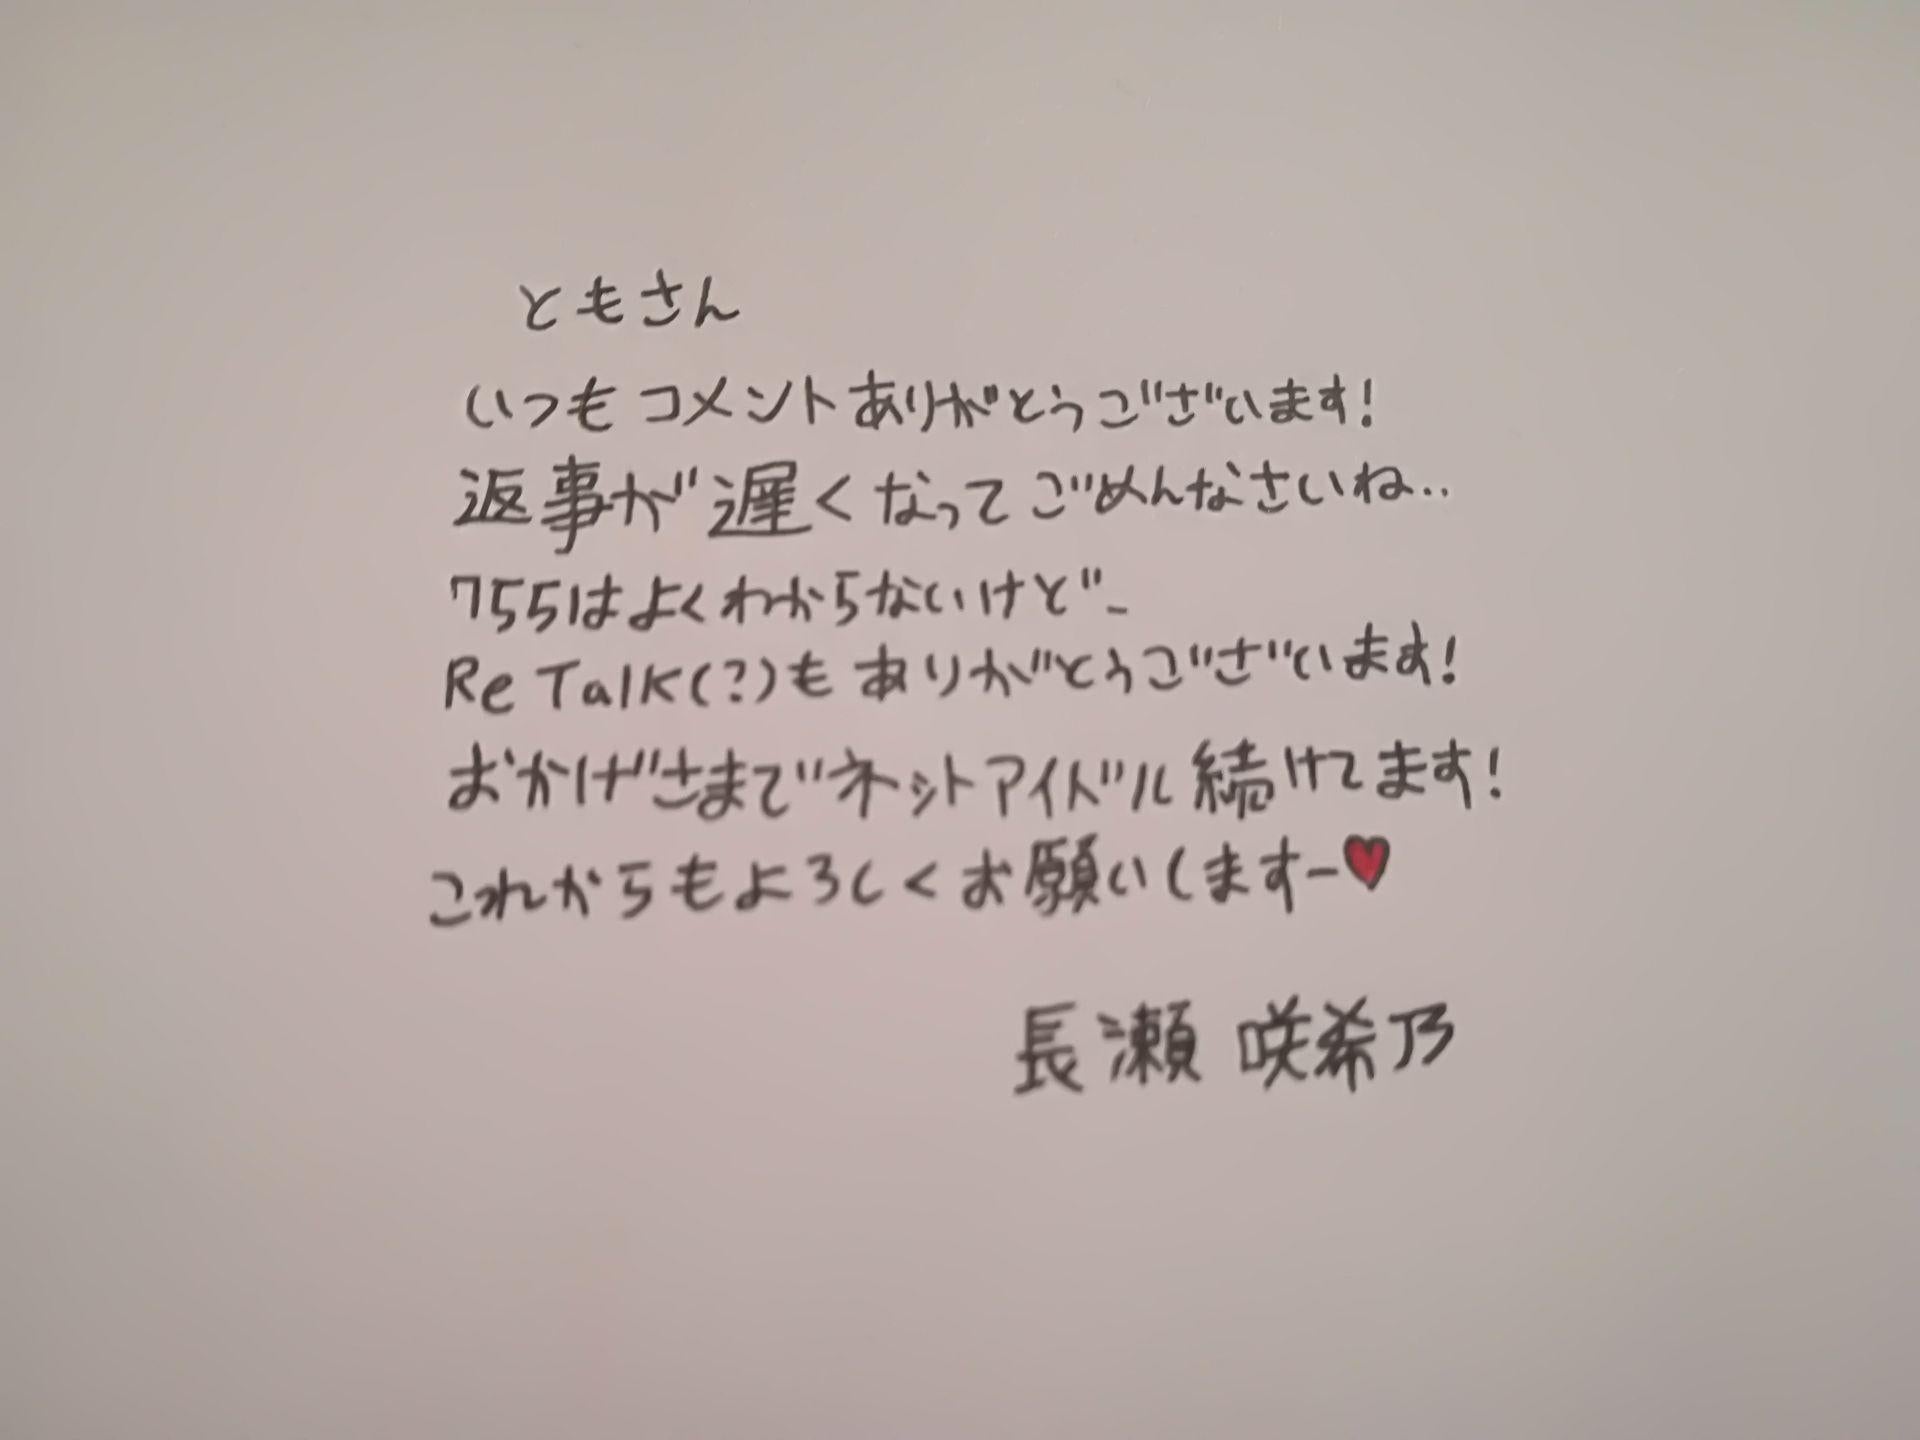 ともさん
いつもコメントありがとうございます!
返事が遅くなってごめんなさいね..
755はよくわからないけど-
Re Talk(?)もありがとうございます!
おかげさまでネットアイドル続けてます!
これからもよろしくお願いしますー♥
長瀬 咲希乃